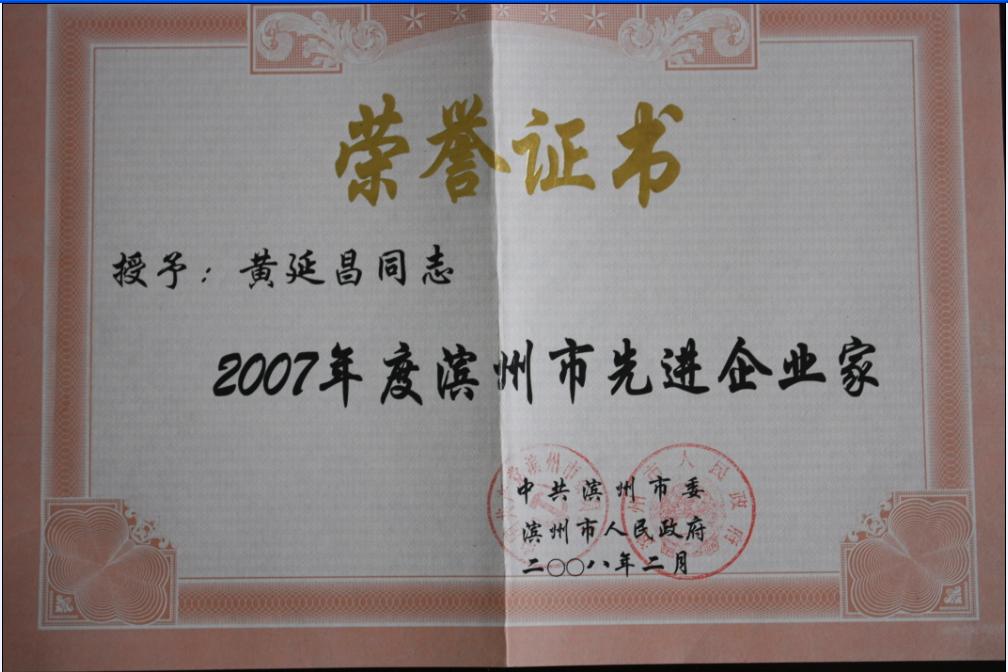 荣誉证书
授予：黄延昌同志
2007年度滨州市先进企业家
中共滨州市委
滨州市人民政府
二〇〇八年二月